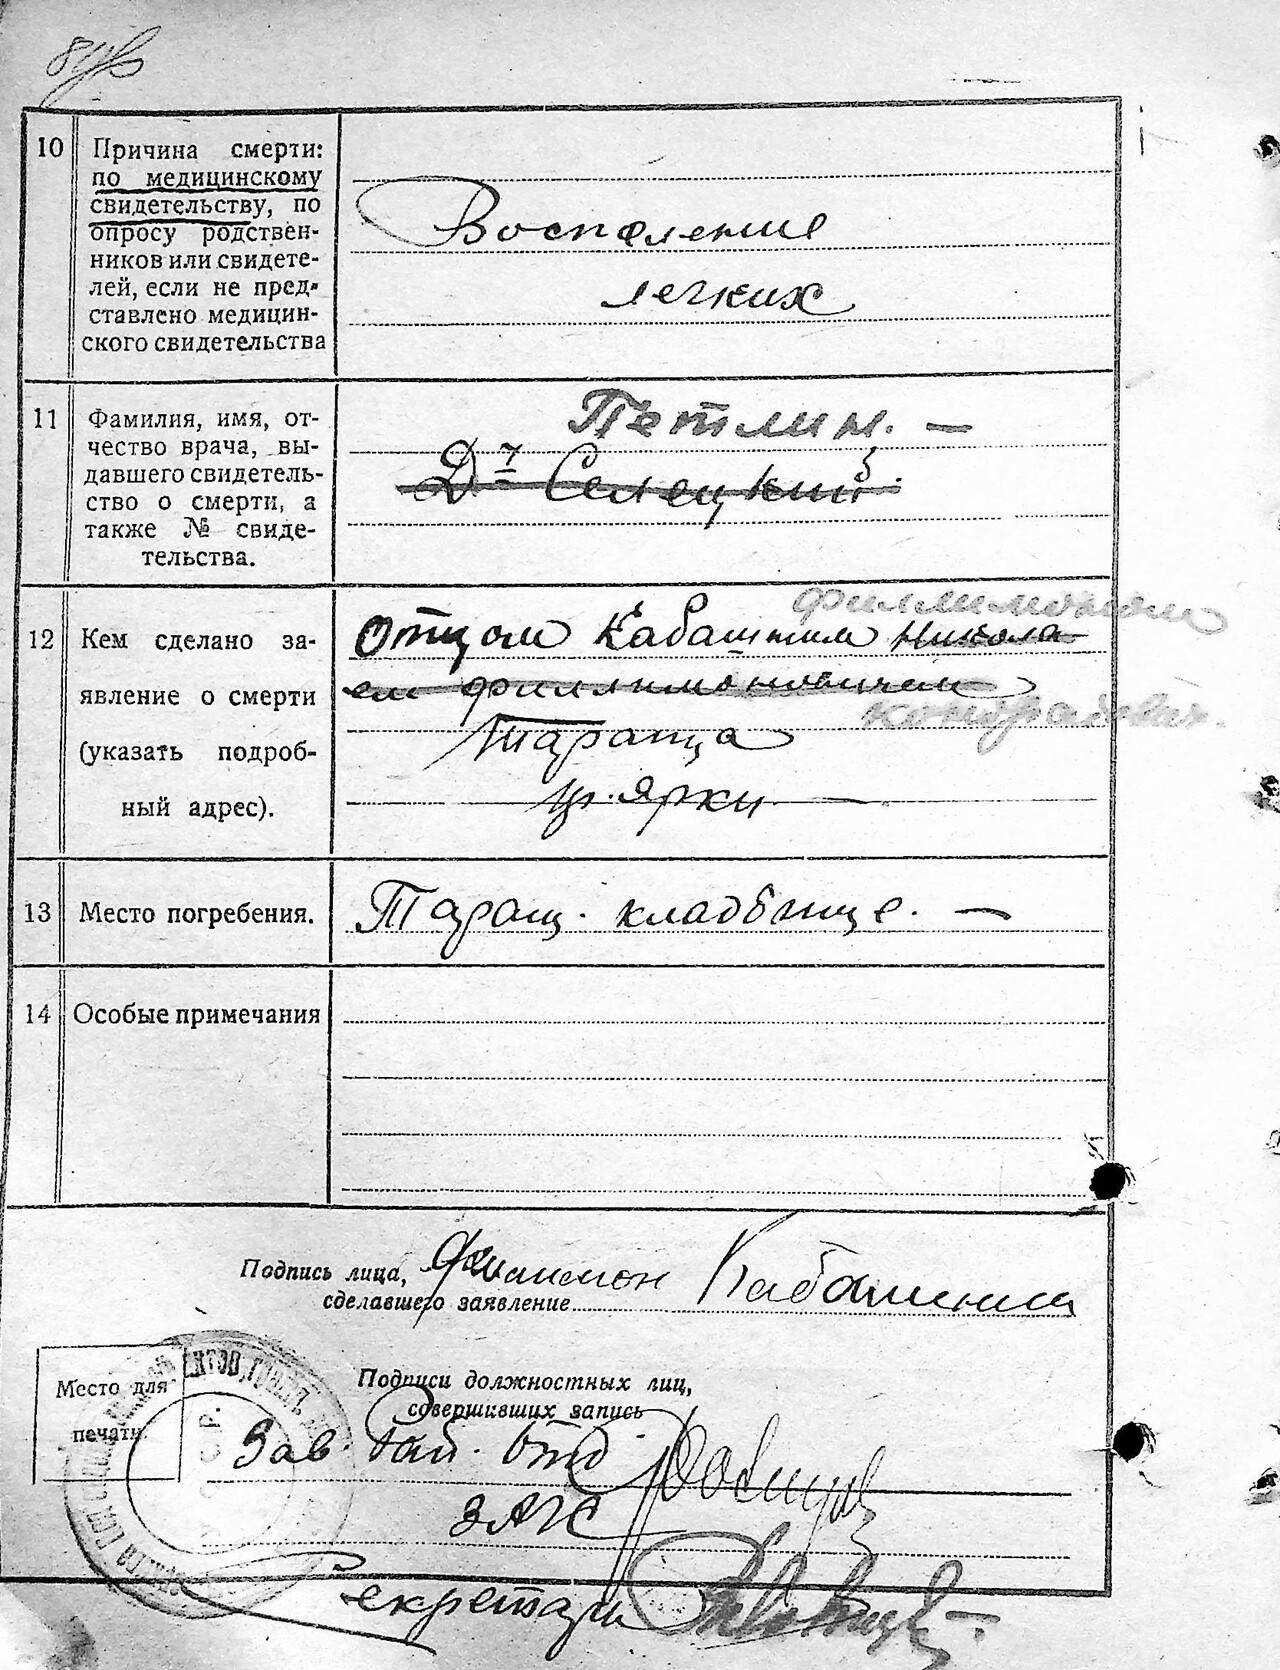 10 Причина смерти:
по медицинскому
свидетельству, по
опросу родствен-
ников или свидете-
лей, если не пред-
ставлено медицин-
ского свидетельства
Воспаление
легких
11 Фамилия, имя, от-
чество врача, вы-
давшего свидетель-
ство о смерти, а
также № свиде-
тельства.
Петлин. —
Селецкий
12 Кем сделано за-
явление о смерти
(указать подроб-
ный адрес).
Филлимоном
Отцом Кабашним Никола
ем Филлимоновичем
Тараща
Ярки
13 Место погребения.
Таращ. кладбище. —
14 Особые примечания
Подпись лица,
сделавшего заявление
Филимон
Место для
печати
Подписи должностных лиц,
совершивших запись
Зав. Рай. Отд
ЗАГС
Секретарь